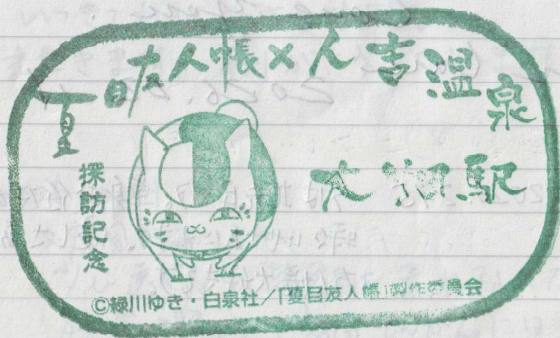 夏目友人帳×人吉温泉
大畑駅
探訪記念
©緑川ゆき・白泉社/「夏目友人帳」製作委員会